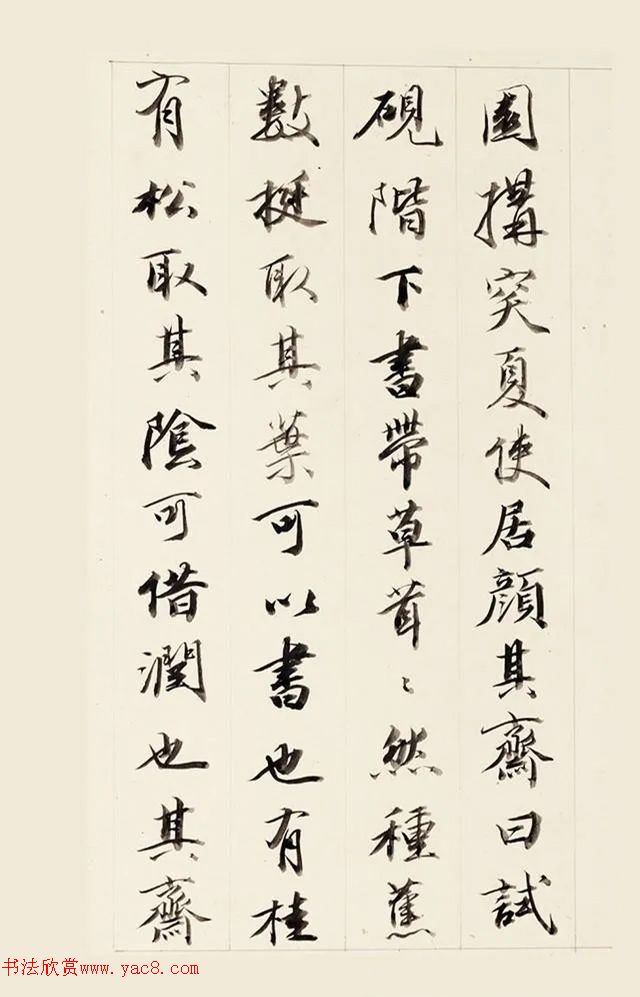 園搆突夏使居顔其齋曰試
硯階下書帶草茸〻然種蕉
數挺取其葉可以書也有桂
有松取其陰可借潤也其齋
书法欣赏www.yac8.com